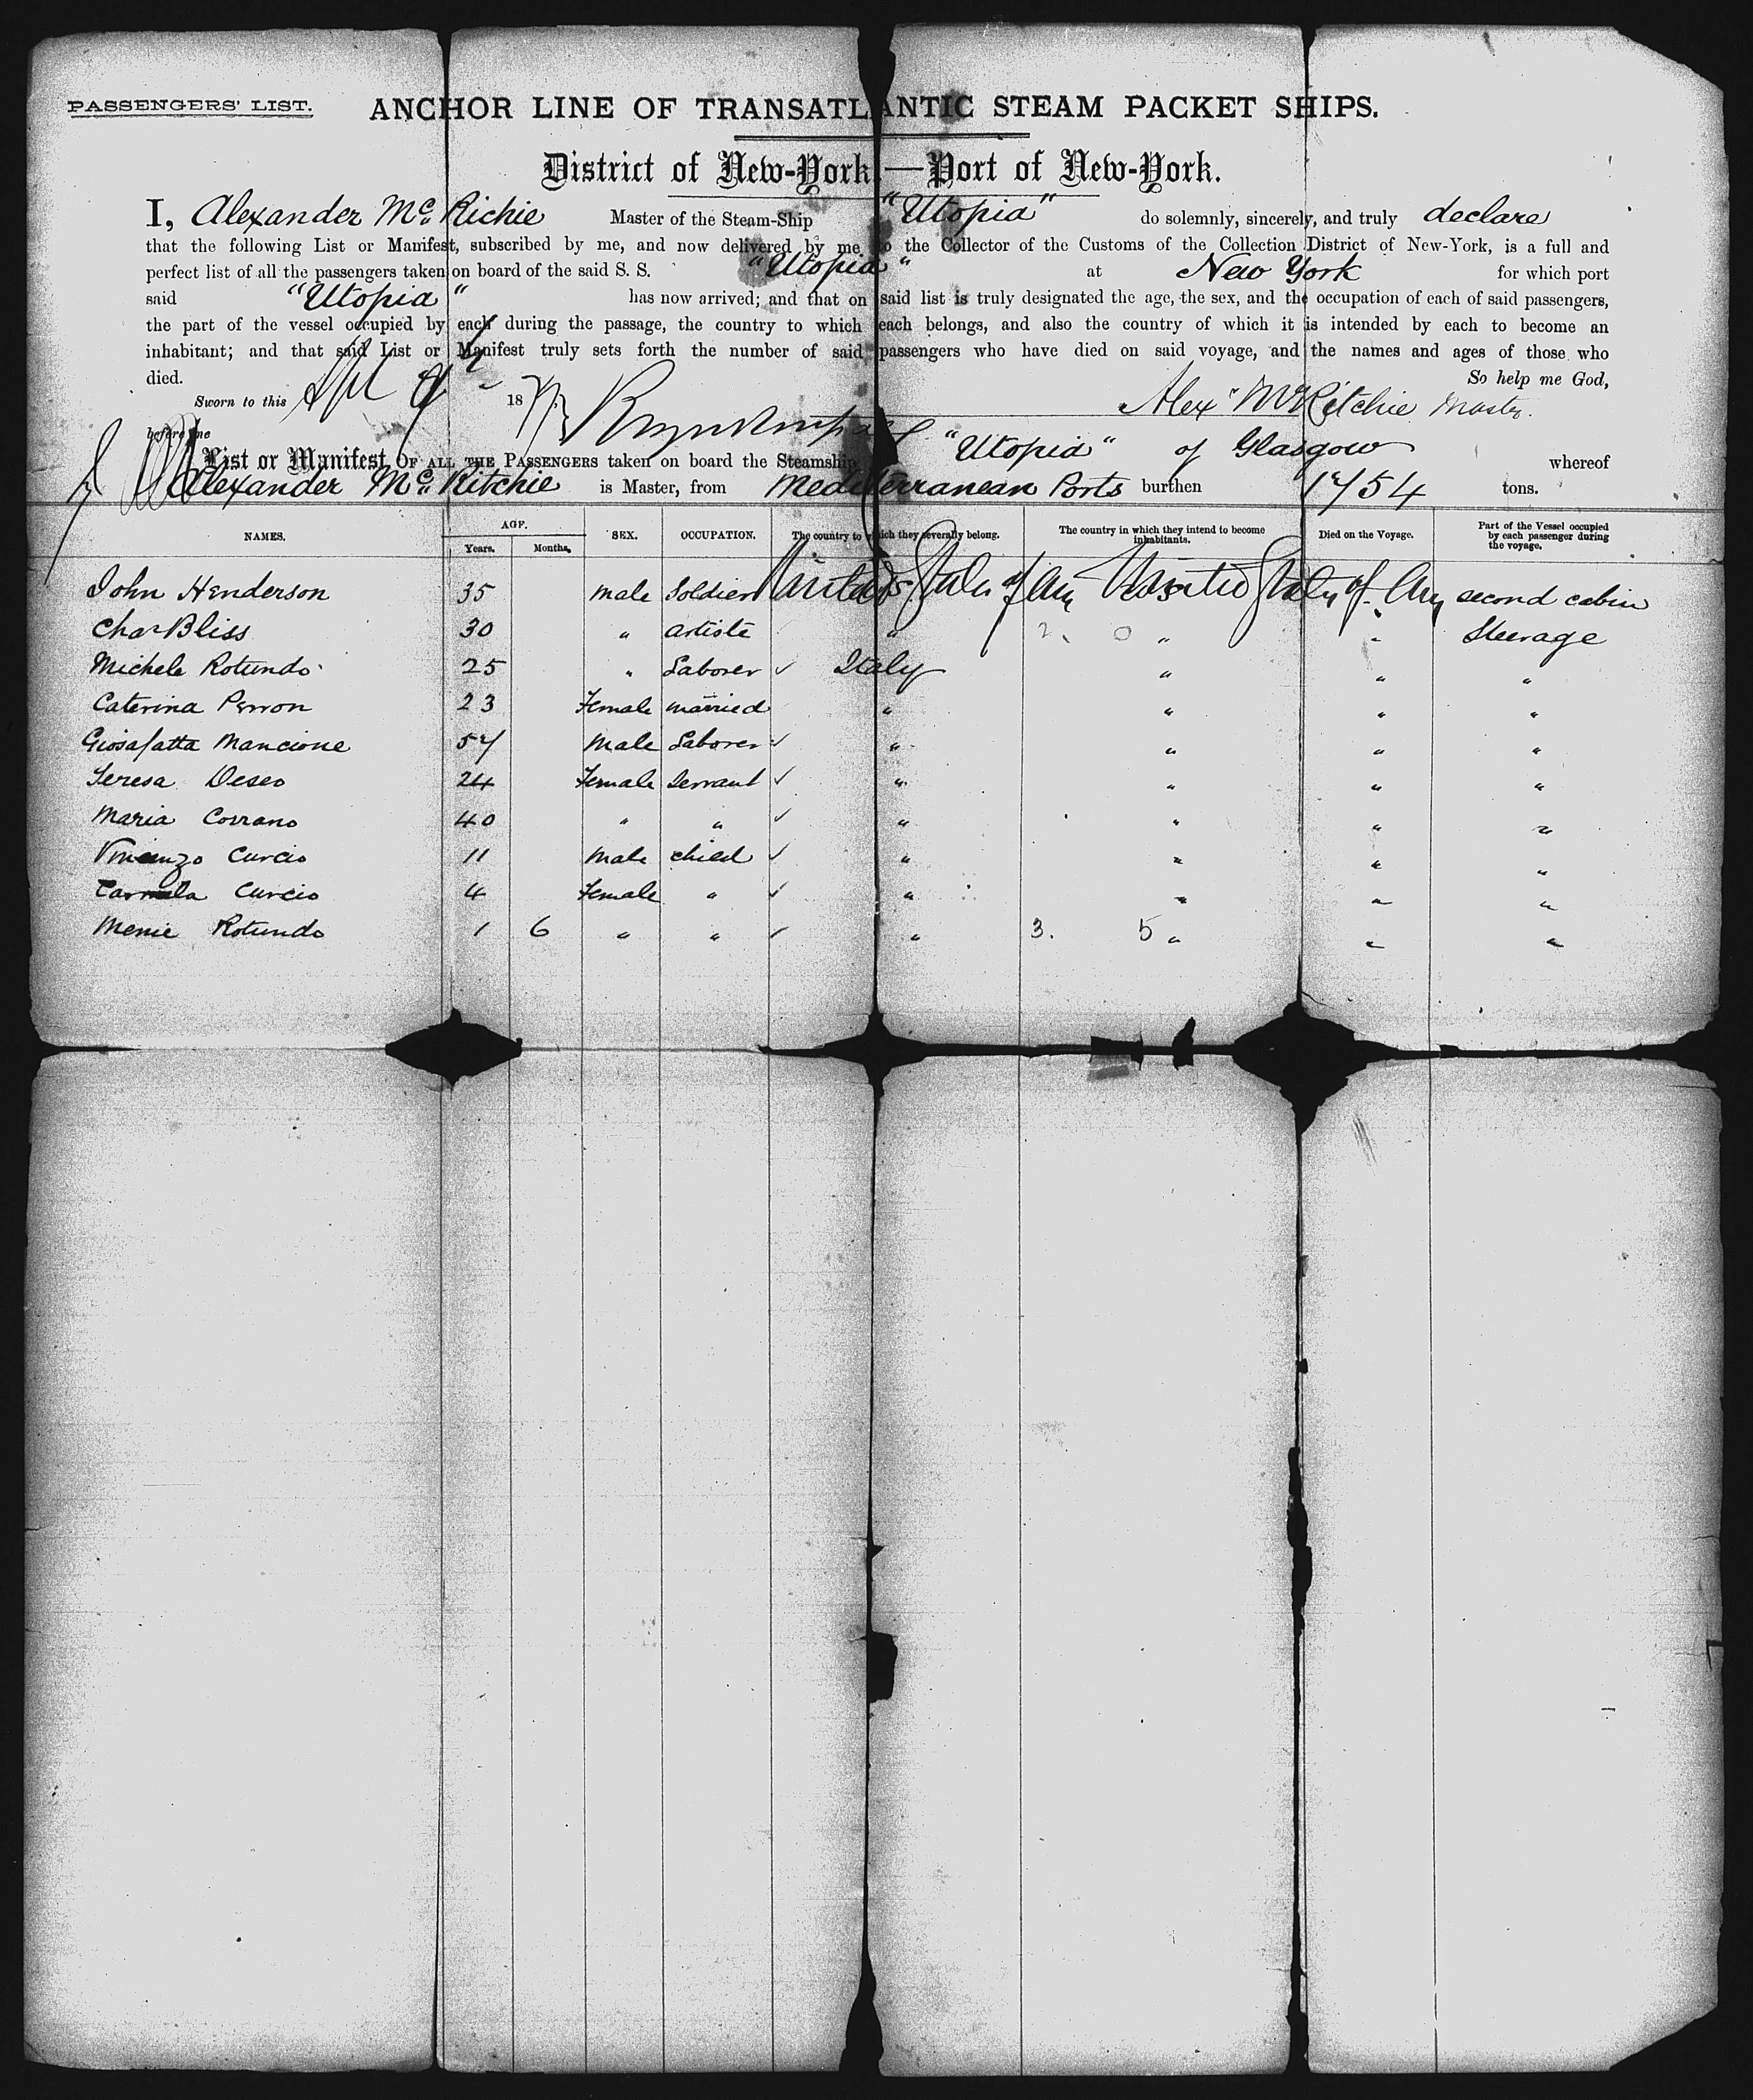 PASSENGERS' LIST. ANCHOR LINE OF TRANSATLANTIC STEAM PACKET SHIPS.
District of New-York,—Port of New-York.
I, Alexander Mc. Richie Master of the Steam-Ship "Utopia" do solemnly, sincerely, and truly declare
that the following List or Manifest, subscribed by me, and now delivered by me to the Collector of the Customs of the Collection District of New-York, is a full and
perfect list of all the passengers taken on board of the said S. S. "Utopia" at New York for which port
said "Utopia" has now arrived; and that on said list is truly designated the age, the sex, and the occupation of each of said passengers,
the part of the vessel occupied by each during the passage, the country to which each belongs, and also the country of which it is intended by each to become an
inhabitant; and that said List or Manifest truly sets forth the number of said passengers who have died on said voyage, and the names and ages of those who
died. So help me God,
Sworn to this 9 18 Alexr McRitchie Master.
before me
List or Manifest OF ALL THE PASSENGERS taken on board the Steamship "Utopia" of Glasgow whereof
Alexander Mc. Ritchie is Master, from Mediterranean Ports burthen 1754 tons.
NAMES. AGE. Years. Months. SEX. OCCUPATION. The country to which they severally belong. The country in which they intend to become inhabitants. Died on the Voyage. Part of the Vessel occupied by each passenger during the voyage.
John Henderson 35 male Soldier United States of Am United States of Am second cabin
Chas Bliss 30 " artiste " 2. 0 " " Steerage
Michele Rotundo 25 " Laborer ✓ Italy " " "
Caterina Perron 23 Female married " " " "
Giosafatta Mancione 57 male Laborer ✓ " " " "
Teresa Deseo 24 Female Servant ✓ " " " "
Maria Corrano 40 " " ✓ " " " "
Vincenzo Curcio 11 male child ✓ " " " "
Carmela Curcio 4 Female " ✓ " " " "
Menie Rotundo 1 6 " " ✓ " 3. 5 " " "